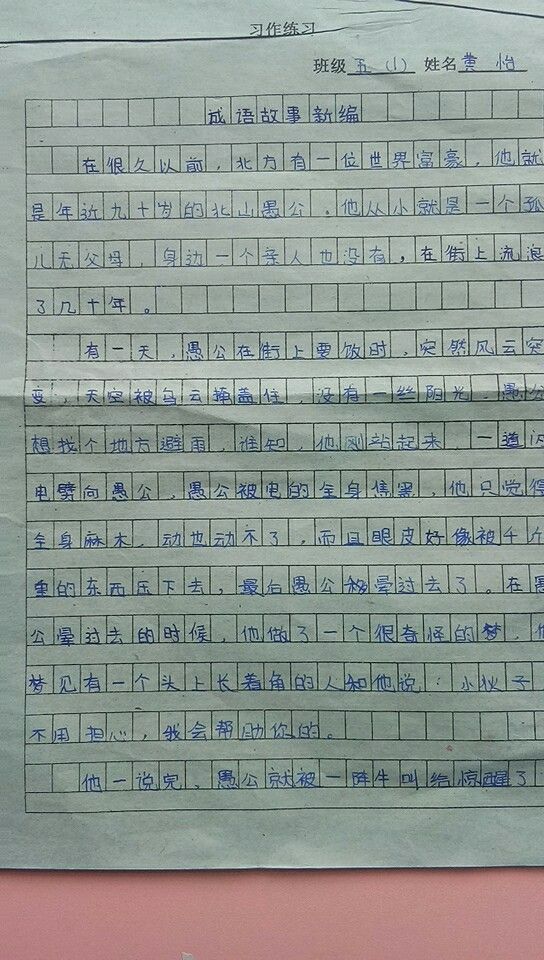 习作练习
班级 五（1） 姓名 黄 怡
成语故事新编
在很久以前，北方有一位世界富豪，他就
是年近九十岁的北山愚公。他从小就是一个孤
儿无父母，身边一个亲人也没有，在街上流浪
了几十年。
有一天，愚公在街上要饭时，突然风云突
变，天空被乌云掩盖住，没有一丝阳光。愚公
想找个地方避雨，谁知，他刚站起来，一道闪
电劈向愚公，愚公被电的全身焦黑，他只觉得
全身麻木，动也动不了，而且眼皮好像被千斤
重的东西压下去，最后愚公晕过去了。在愚
公晕过去的时候，他做了一个很奇怪的梦，他
梦见有一个头上长着角的人和他说：小伙子
不用担心，我会帮助你的。
他一说完，愚公就被一阵牛叫给惊醒了